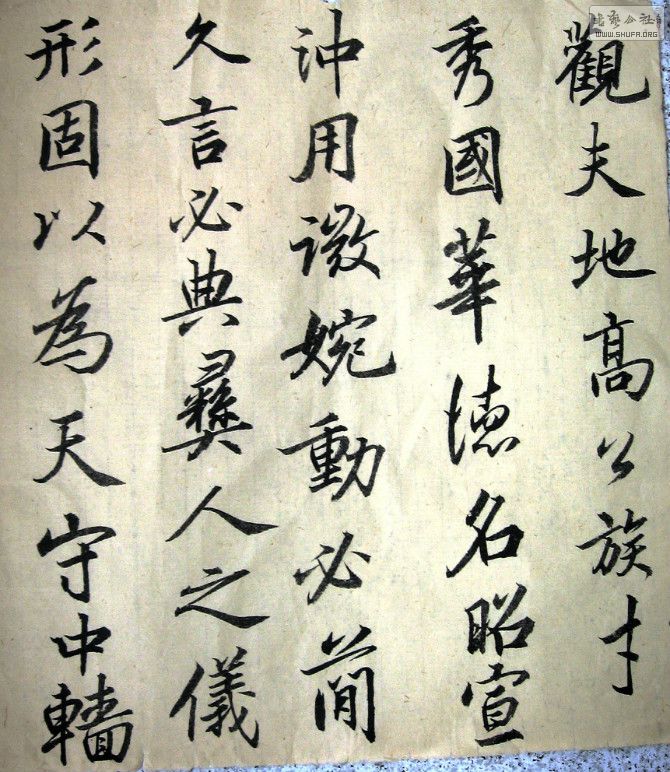 觀夫地高公族才
秀國華德名昭宣
沖用微婉動必簡
久言必典彝人之儀
形固以為天守中轖
書藝公社
WWW.SHUFA.ORG